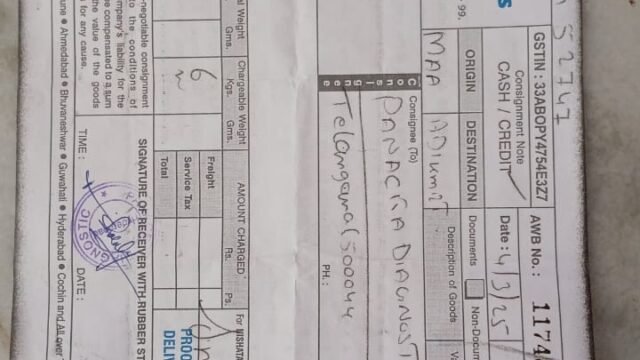 52747
S
99.
GSTIN : 33ABOPY4754E3Z7
AWB No. : 1174
Consignment Note
CASH / CREDIT
Date : 4/3/25
ORIGIN
DESTINATION
Documents
Non-Docum
MAA
Description of Goods
Consignee (To)
PANACEA DIAGNOST
Telangana (500044
PH. :
al Weight
Chargeable Weight
AMOUNT CHARGED
Gms.
Kgs.
Gms.
Rs.
Ps.
6
Freight
Service Tax
Total
For NISHATA
PROO
DELIV
-negotiable consignment
to the conditions of
mpany's liability for the
e compensated to a sum
the value of the goods
s for any cause.
SIGNATURE OF RECEIVER WITH RUBBER ST
TIME :
DATE :
GNOSTIC
une ● Ahmedabad ● Bhuvaneshwar ● Guwahati ● Hyderabad ● Cochin and All over